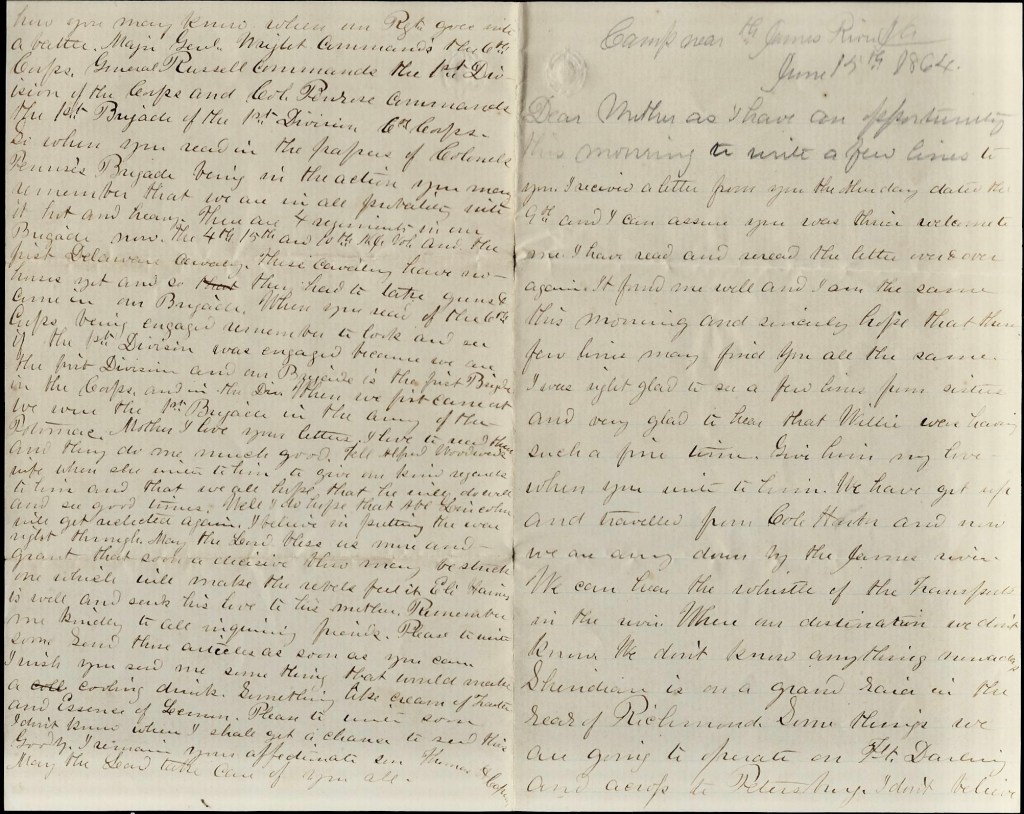 Camp near th James River Va
June 15th 1864.
Dear Mother as I have an opportunity
this morning to write a few lines to
you. I received a letter from you the other day dated the
9th and I can assure you was thrice welcome to
me. I have read and reread the letter over & over
again. It found me well and I am the same
this morning and sincerely hope that these
few lines may find you all the same.
I was right glad to see a few lines from sisters
and very glad to hear that Willie were having
such a fine time. Give him my love
when you write to him. We have got up
and travelled from Cole Harbor and now
we are away down by the James river.
We can hear the whistle of the Transports
in the river. Where our destination we don't
know. We don't know anything
Sheridian is on a grand raid in the
rear of Richmond. Some things we
are going to operate on Ft. Darling
and across to Petersburg. I don't believe
how you may know when our Regt. goes into
a battle. Major Genl. Wright Commands the 6th
Corps. General Russell Commands the 1st Div-
ision of the Corps and Col. Penrose Commands
the 1st Brigade of the 1st Division 6th Corps.
So when you read in the papers of Colonels
Penroses Brigade being in the action you may
remember that we are in all probability into
it hot and heavy. There are 4 regiments in our
Brigade now. The 4th 15th and 10th N.J. Vol and the
first Delaware Cavalry. These Cavalry have no
horses yet and so that they had to take guns &
come in our Brigade. When you read of the 6th
Corps being engaged remember to look and see
if the 1st Division was engaged because we are
the first Division and our Brigade is the first Brigde
in the Corps. and in the Div. When we first came out
we were the 1st Brigade in the army of the
Potomac. Mother I love your letters. I love to read them
and they do me much good. Tell Alfred Woodwards
wife when she writes to him to give our kind regards
to him and that we all hope that he will do well
and see good times. Well I do hope that Abe Lincoln
will get reelected again. I believe in putting the war
right through. May the Lord bless us more and
grant that soon a decisive blow may be struck
one which will make the rebels feel it. Eli Haines
is well and sends his love to his mother. Remember
me kindly to all inquiring friends. Please to write
soon. Send those articles as soon as you can.
I wish you send me some thing that would make
a cold cooling drink. Something like cream of tarter
and Essence of Lemon. Please to write soon
I don't know when I shall get a chance to send this
Good by. I remain your affectionate son Thomas
May the Lord take care of you all.